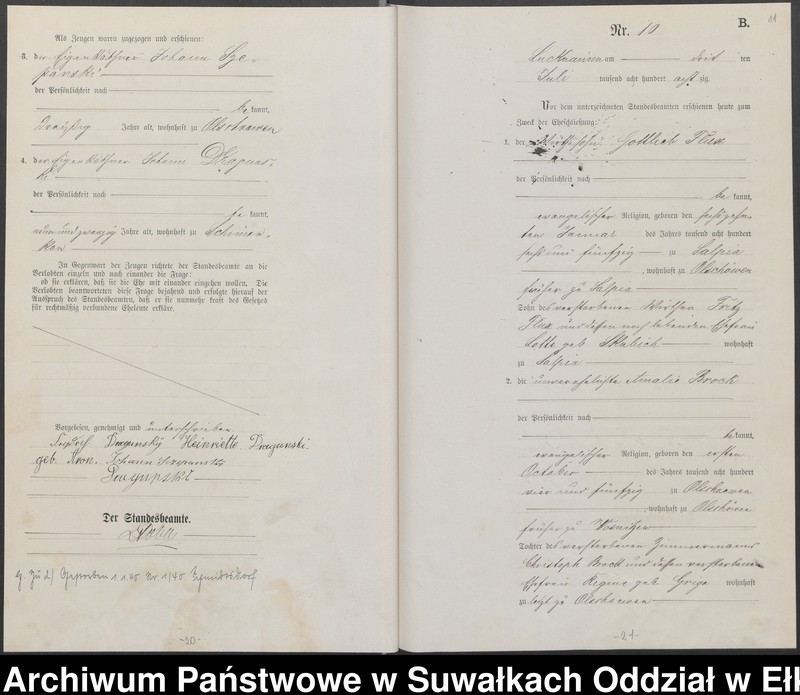 Als Zeugen waren zugezogen und erschienen:
3. der Eigenkäthner Johann Sze-
panski
der Persönlichkeit nach
be kannt,
Dreißig Jahre alt, wohnhaft zu Olschoewen
4. der Eigenkäthner Johann
der Persönlichkeit nach
be kannt,
neun und zwanzig Jahre alt, wohnhaft zu
In Gegenwart der Zeugen richtete der Standesbeamte an die
Verlobten einzeln und nach einander die Frage:
ob sie erklären, daß sie die Ehe mit einander eingehen wollen. Die
Verlobten beantworteten diese Frage bejahend und erfolgte hierauf der
Ausspruch des Standesbeamten, daß er sie nunmehr kraft des Gesetzes
für rechtmäßig verbundene Eheleute erkläre.
Vorgelesen, genehmigt und unterschrieben
Heinriette
geb. Kron. Johann
Der Standesbeamte.
-20-
11
B.
Nr. 10
am dritten
Juli tausend acht hundert acht zig.
Vor dem unterzeichneten Standesbeamten erschienen heute zum
Zweck der Eheschließung:
1. der Gottlieb Flux
der Persönlichkeit nach
be kannt,
evangelischer Religion, geboren den sechszehn
ten Januar des Jahres tausend acht hundert
sechs und fünfzig zu Salpia
, wohnhaft zu Olschöwen
früher zu Salpia
Sohn des verstorbenen Wirthen Fritz
Flux und dessen noch lebenden Ehefrau
Lotte geb wohnhaft
zu Salpia
2. die unverehelichte Amalie Brock
der Persönlichkeit nach
be kannt,
evangelischer Religion, geboren den ersten
October des Jahres tausend acht hundert
vier und fünfzig zu Olschoewen
, wohnhaft zu Olschöwen
früher zu
Tochter des verstorbenen Zimmermanns
Christoph Brock und dessen verstorbene
Ehefrau Regine geb Griga wohnhaft
zu letzt zu Olschoewen
-21-
Archiwum Państwowe w Suwałkach Oddział w Eł